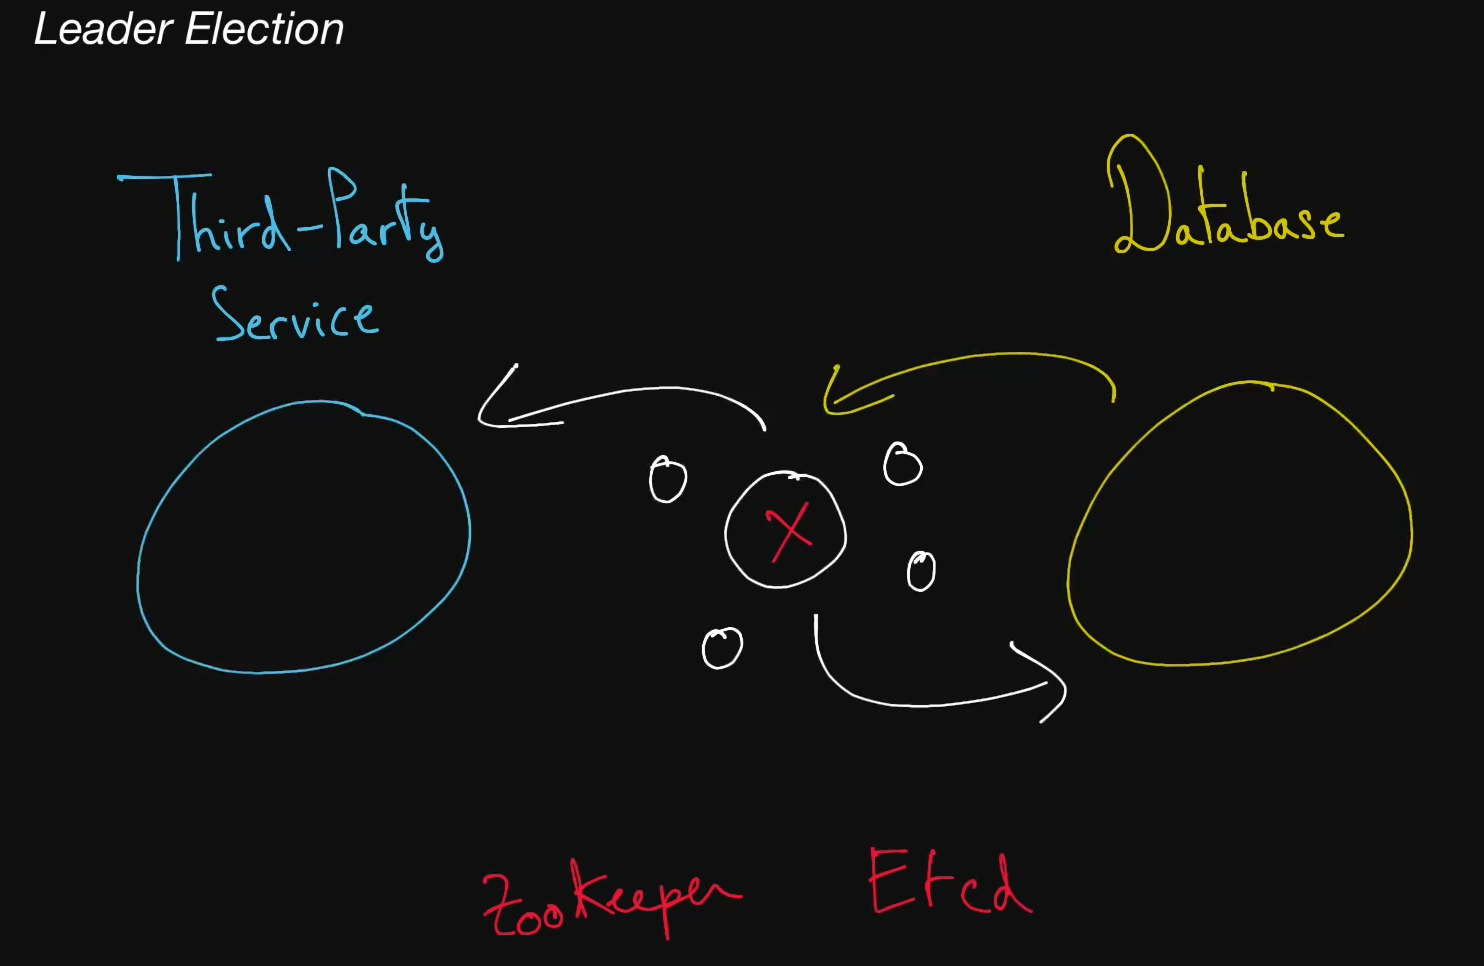 Leader Election
Third-Party
Service
Database
X
Zookeeper
Etcd